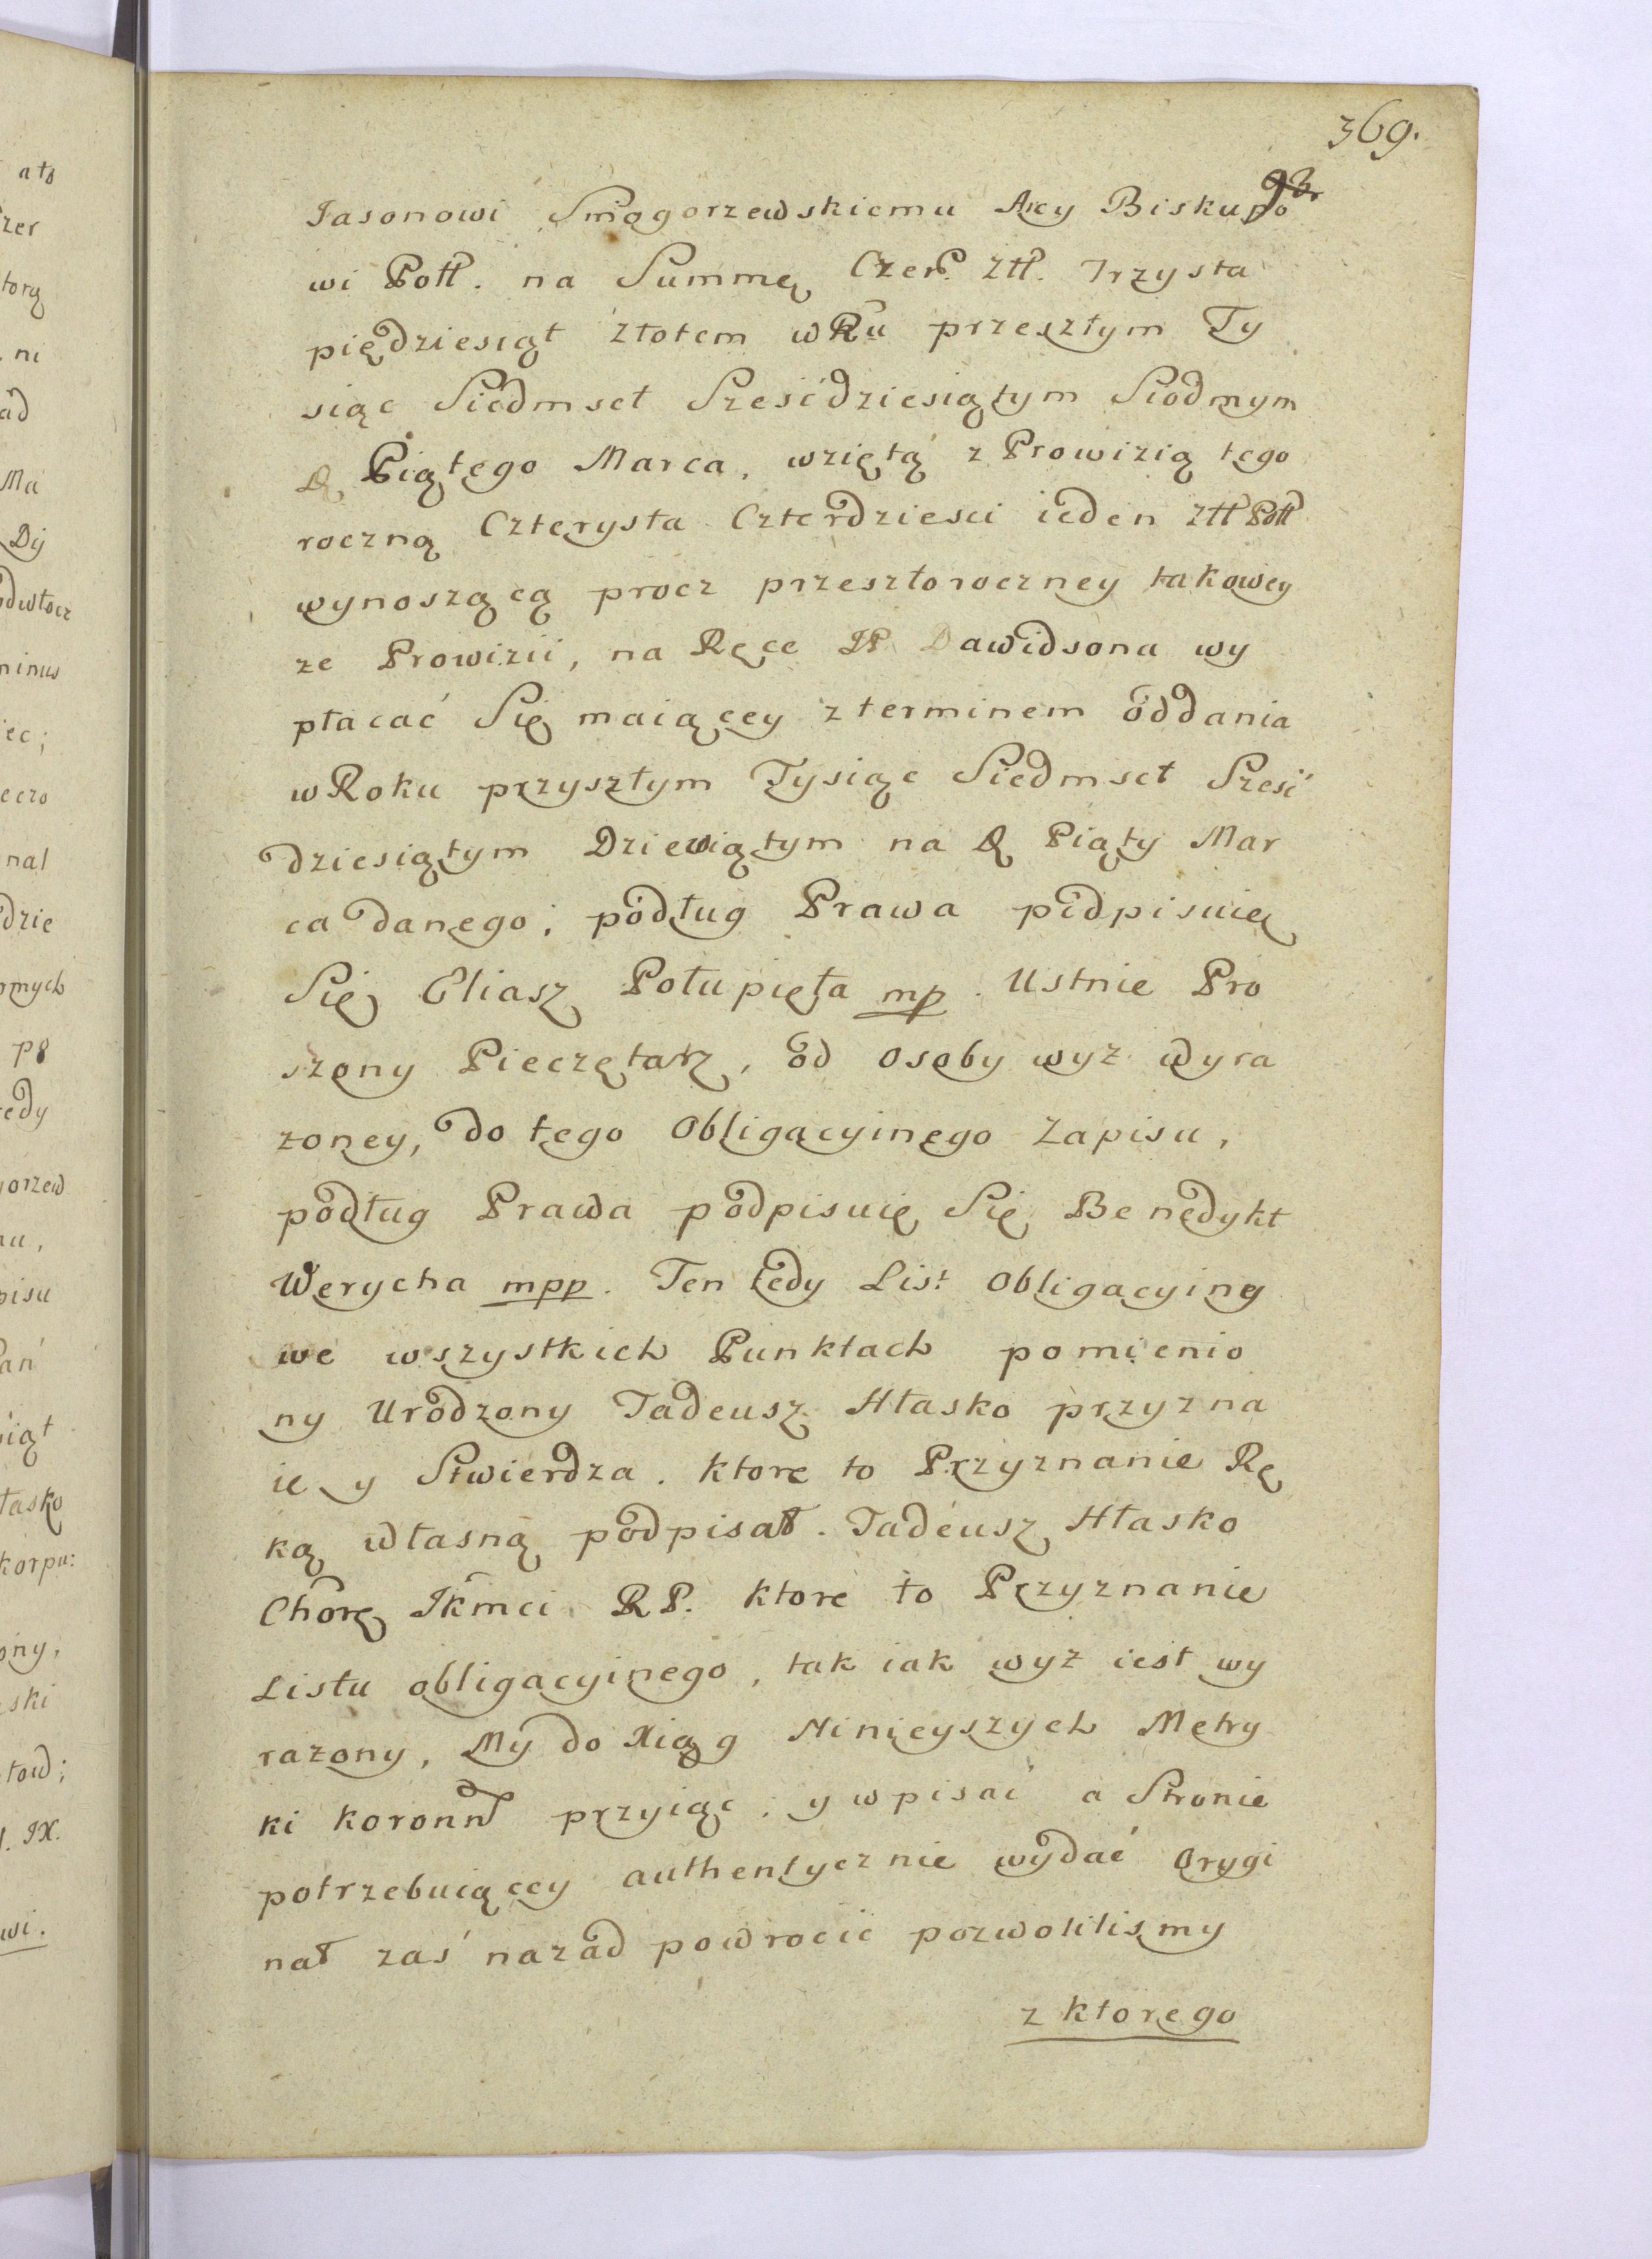 369.
Jasonowi Smogorzewskiemu Arcy Biskupo
wi Połł. na Summę Czer. Złł. Trzysta
piędziesiąt złotem w Ru przeszłym Ty
siąc Siedmset Sześćdziesiątym Siodmym
D. Piątego Marca, wziętą z Prowizią tego
roczną Czterysta Czterdziesci ieden złł Poll
wynoszącą procz przeszłoroczney takowey
ze Prowizii, na Ręce JP Dawidsona wy
płacać Się maiącey z terminem oddania
w Roku przyszłym Tysiąc Siedmset Sześć
dziesiątym Dziewiątym na D. Piąty Mar
ca danego; podług Prawa podpisuię
Się Eliasz Połupięta mp. Ustnie Pro
szony Pieczętarz, od osoby wyż wyra
zoney, do tego Obligacyinego Zapisu,
podług Prawa podpisuię Się Benedykt
Werycha mpp. Ten tedy List Obligacyiny
we wszystkich Punktach pomienio
ny Urodzony Tadeusz Hłasko przyzna
ie y Stwierdza. Ktore to Przyznanie Rę
ką własną podpisał. Tadeusz Hłasko
Chorę Jkmci RP. Ktore to Przyznanie
Listu obligacyinego, tak iak wyż iest wy
razony, My do Xiąg Ninieyszych Metry
ki Koronn przyiąc, y wpisać a Stronie
potrzebuiącey authentycznie wydać Orygi
nał zaś nazad powrocić pozwolilismy
z ktorego
ato
zer
torą
ni
ad
Ma
Dij
odwłocz
minus
iec;
eczo
nal
dzie
omych
edy
orzew
nu,
pisu
Pań
iąt
łasko
korpu:
ony,
ski
tow;
IX.
wi.